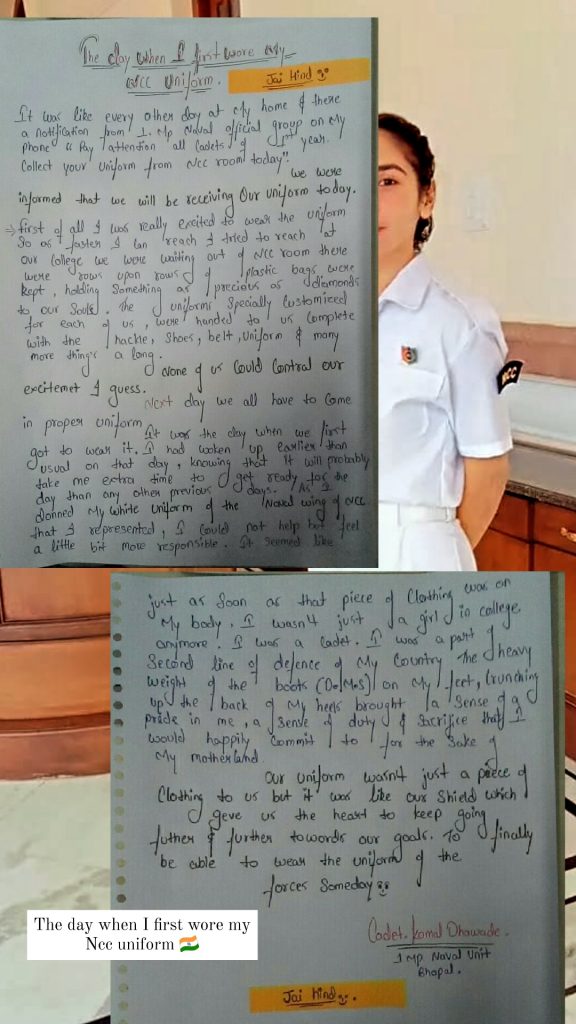 The day when I first wore my
NCC Uniform.
Jai Hind
It was like every other day at My home & there
a notification from 1. Mp Naval official group on My
phone "Pay attention all Cadets of 1st year.
Collect your Uniform from NCC room today".
we were
informed that we will be receiving Our uniform today.
→ first of all I was really excited to wear the uniform
So as faster I Can reach I tried to reach at
our College we were waiting out of NCC room there
were rows upon rows of plastic bags were
kept, holding Something as precious as diamonds
to our Souls. The uniforms Specially Customized
for each of us, were handed to us Complete
with the hackle, Shoes, belt, Uniform & many
more things a long.
None of us Could Control our
excitemet I guess.
Next day we all have to Come
in proper uniform
It was the day when we first
got to wear it. I had woken up earlier than
usual on that day, knowing that it will probably
take me extra time to get ready for the
day than any other previous days. As I
donned My white Uniform of the Naval wing of NCC
that I represented, I Could not help but feel
a little bit more responsible. It Seemed like
NCC
just as Soon as that piece of Clothing was on
My body. I wasn't just a girl in college
anymore. I was a Cadet. I was a part of
Second line of defence of My Country The heavy
weight of the boots (D.M.S) on My feet, Crunching
up the back of My heels brought a Sense of a
pride in me, a Sense of duty & Sacrifice that I
would happily Commit to for the Sake of
My motherland.
Our uniform wasn't just a piece of
Clothing to us but it was like our Shield which
geve us the heart to keep going
futher & further towords our goals. To finally
be able to wear the uniform of the
forces Someday
Cadet. Komal Dhawade.
1 Mp Naval Unit
Bhopal.
Jai hind
The day when I first wore my
Ncc uniform 🇮🇳